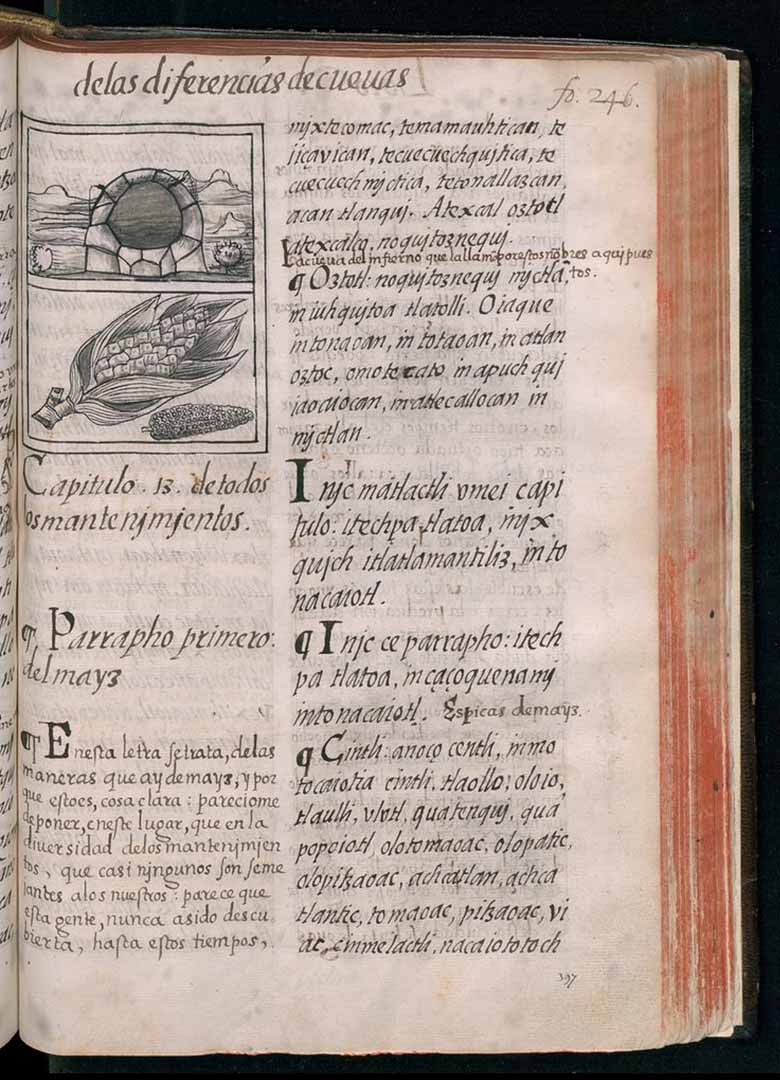 delas diferencias decueuas
fo. 246.
Capitulo .13. detodos
los mantenjmjentos.
¶ Parrapho primero:
del mayz
¶ Enesta letra setrata, delas
maneras que ay demayz, y por
que estoes, cosa clara: pareciome
deponer, eneste lugar, que en la
diuersidad delos mantenjmjen
tos, que casi njngunos son seme
iantes alos nuestros: parece que
esta gente, nunca a sido descu
bierta, hasta estos tiempos,
mjxtecomac, temamauhtican, te
iiçavican, tecuecuechqujtica, te
cuecuech mjctica, tetonallazcan,
acan tlanquj. Atexcal oztotl
atexcalco. noqujtoznequj.
La cueua del infierno que la llamã por estos nõbres aqui pues
tos.
¶ Oztotl: noqujtoznequj mjctlã,
in iuh qujtoa tlatolli. Oiaque
in tonaoan, in totaoan, in atlan
oztoc, omotecato, in apuch quj
iaoaiocan, in atlecallocan in
mjctlan.
Injc matlactli vmei capi
tulo: itechpa tlatoa, in jx
qujch itlatlamantiliz, in to
nacaiotl.
¶ Injc ce parrapho: itech
pa tlatoa, in çaçoquenamj
in tonacaiotl. Espicas demayz.
¶ Cintli: anoço centli, inmo
tocaiotia cintli, tlaollo, oloio,
tlaulli, vlotl, quatenquj, qua
popoiotl, olotomaoac, olopatic,
olopitzaoac, achcatlan, achca
tlantic, tomaoac, pitzaoac, vi
ac, cinmelactli, nacaiototoch
397